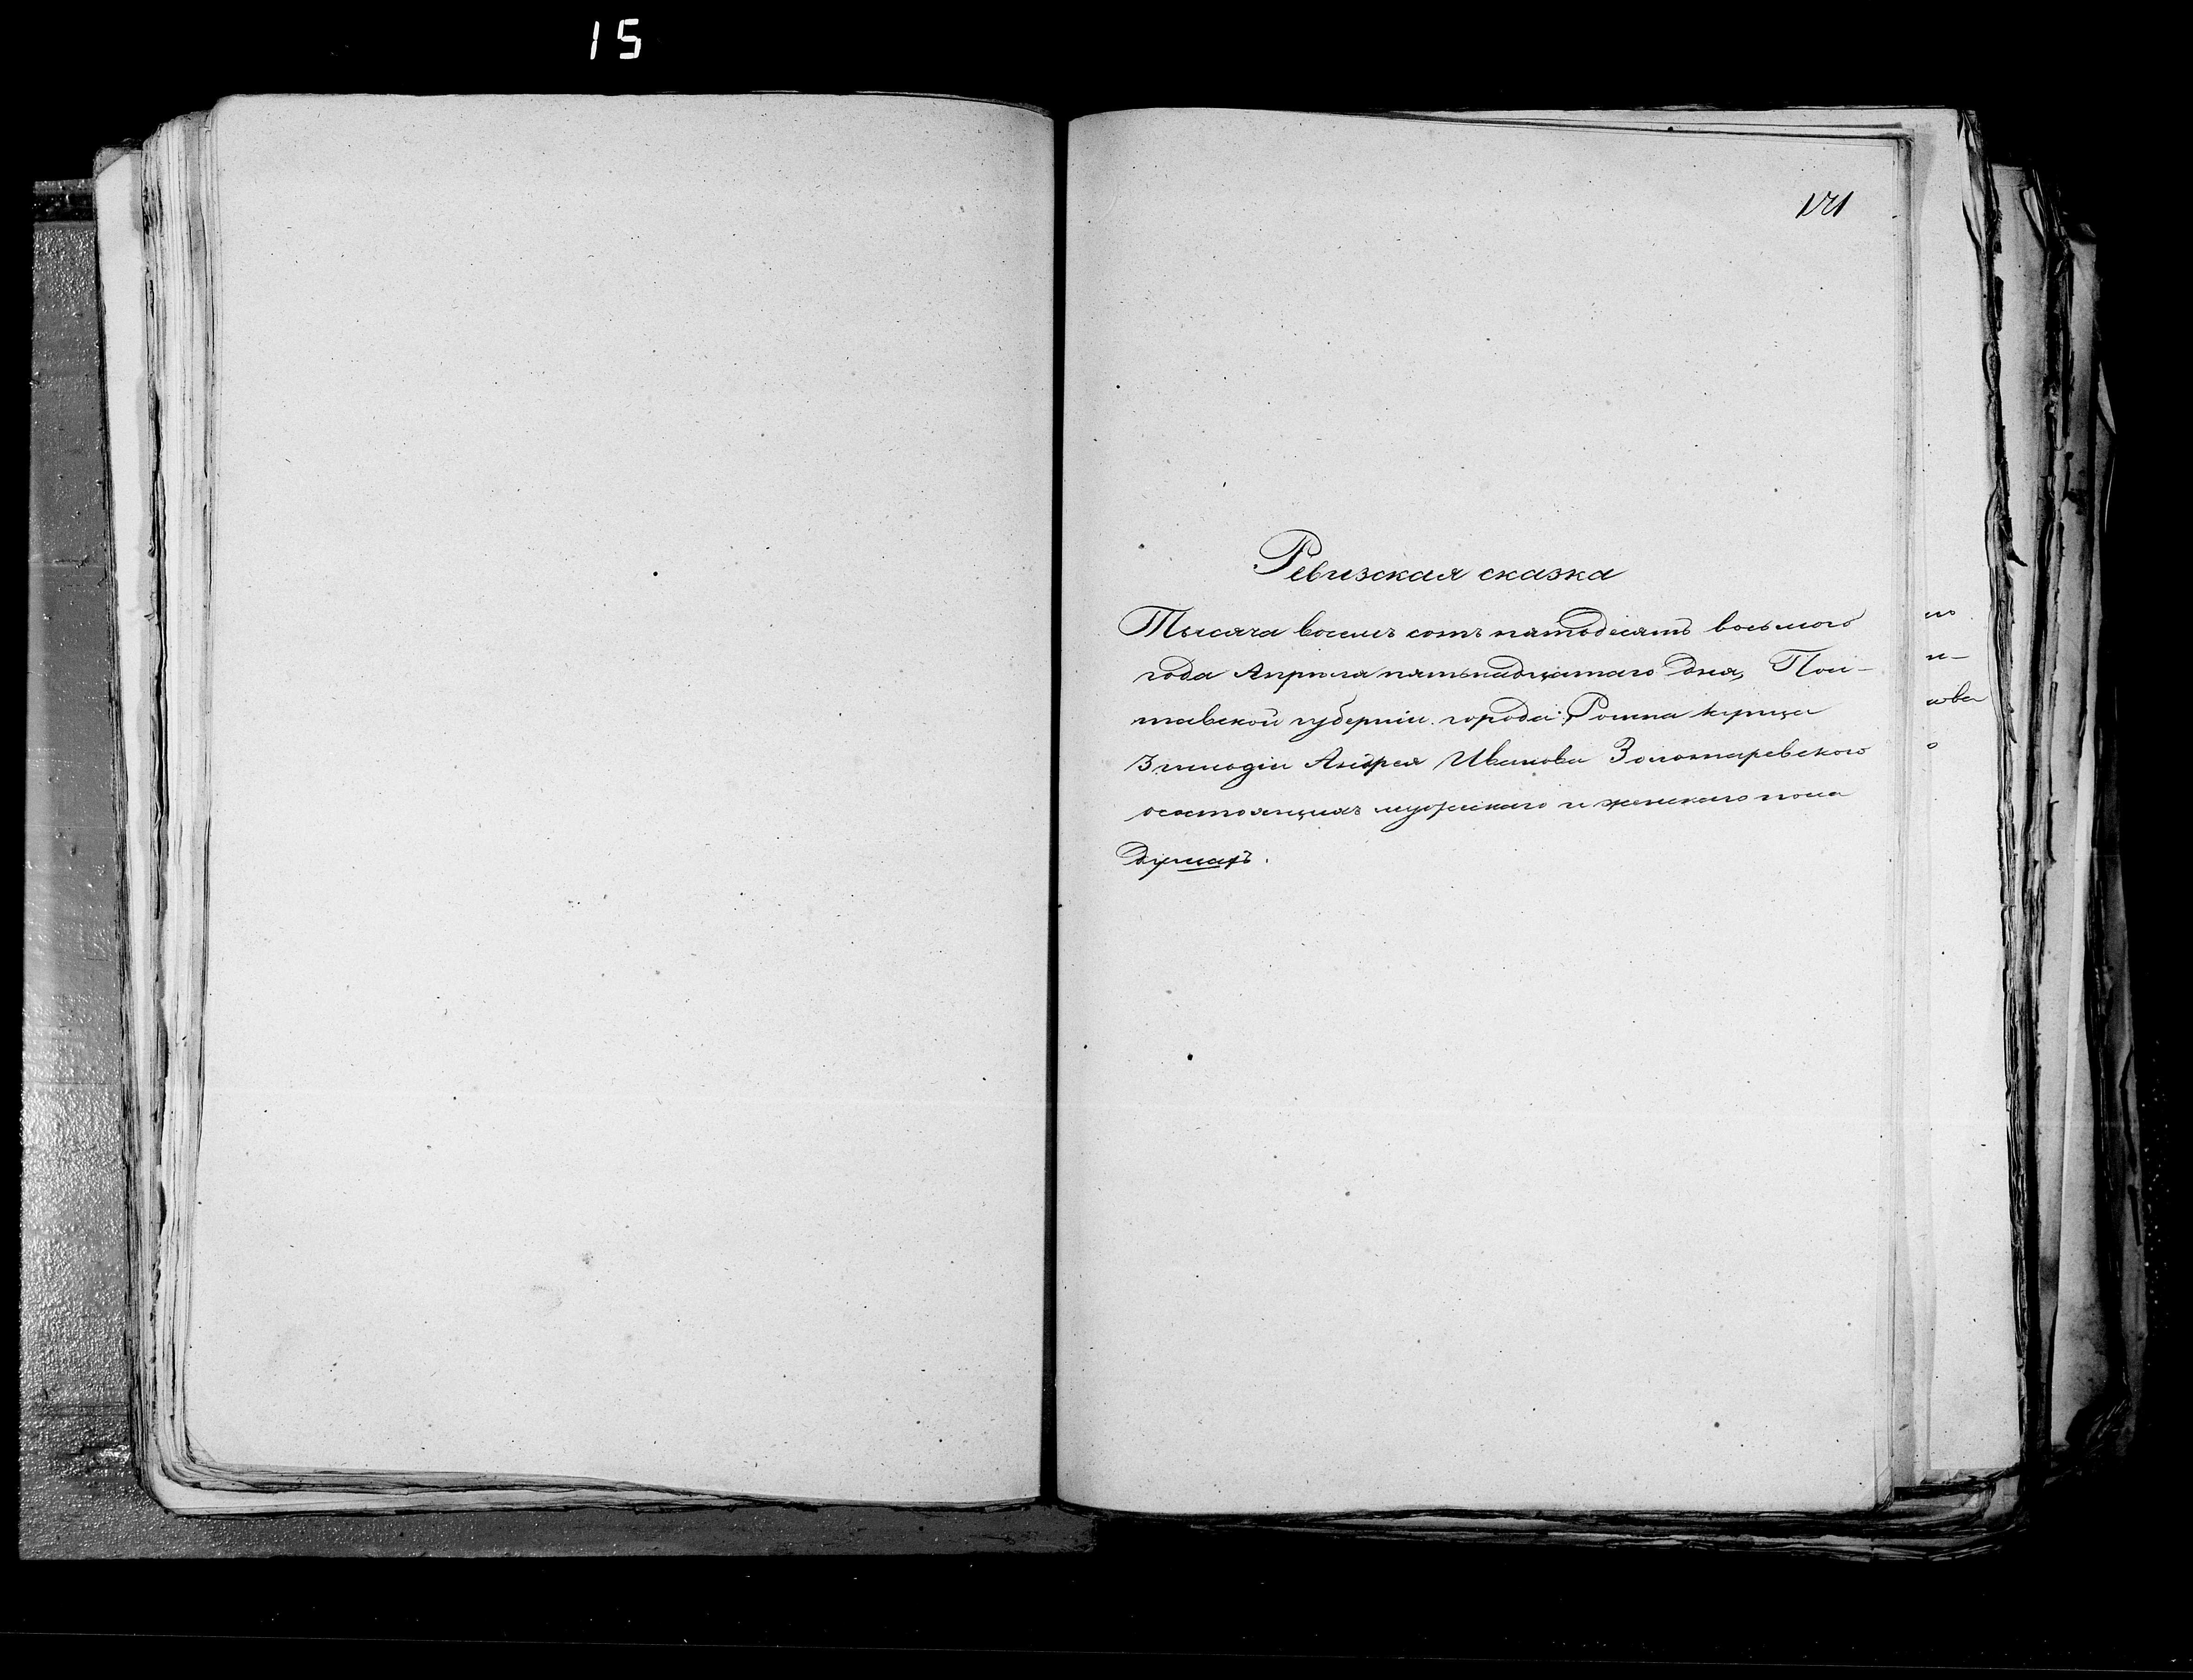 15
171
Ревизская сказка
Тысяча восемь сотъ пятьдесятъ восьмого
года Апреля пятьнадцатаго дня, Пол-
тавской губерніи города Ромна купца
3 гильдіи Андрея Иванова Золотаревского
о состоящихъ мужескаго и женскаго пола
душахъ.